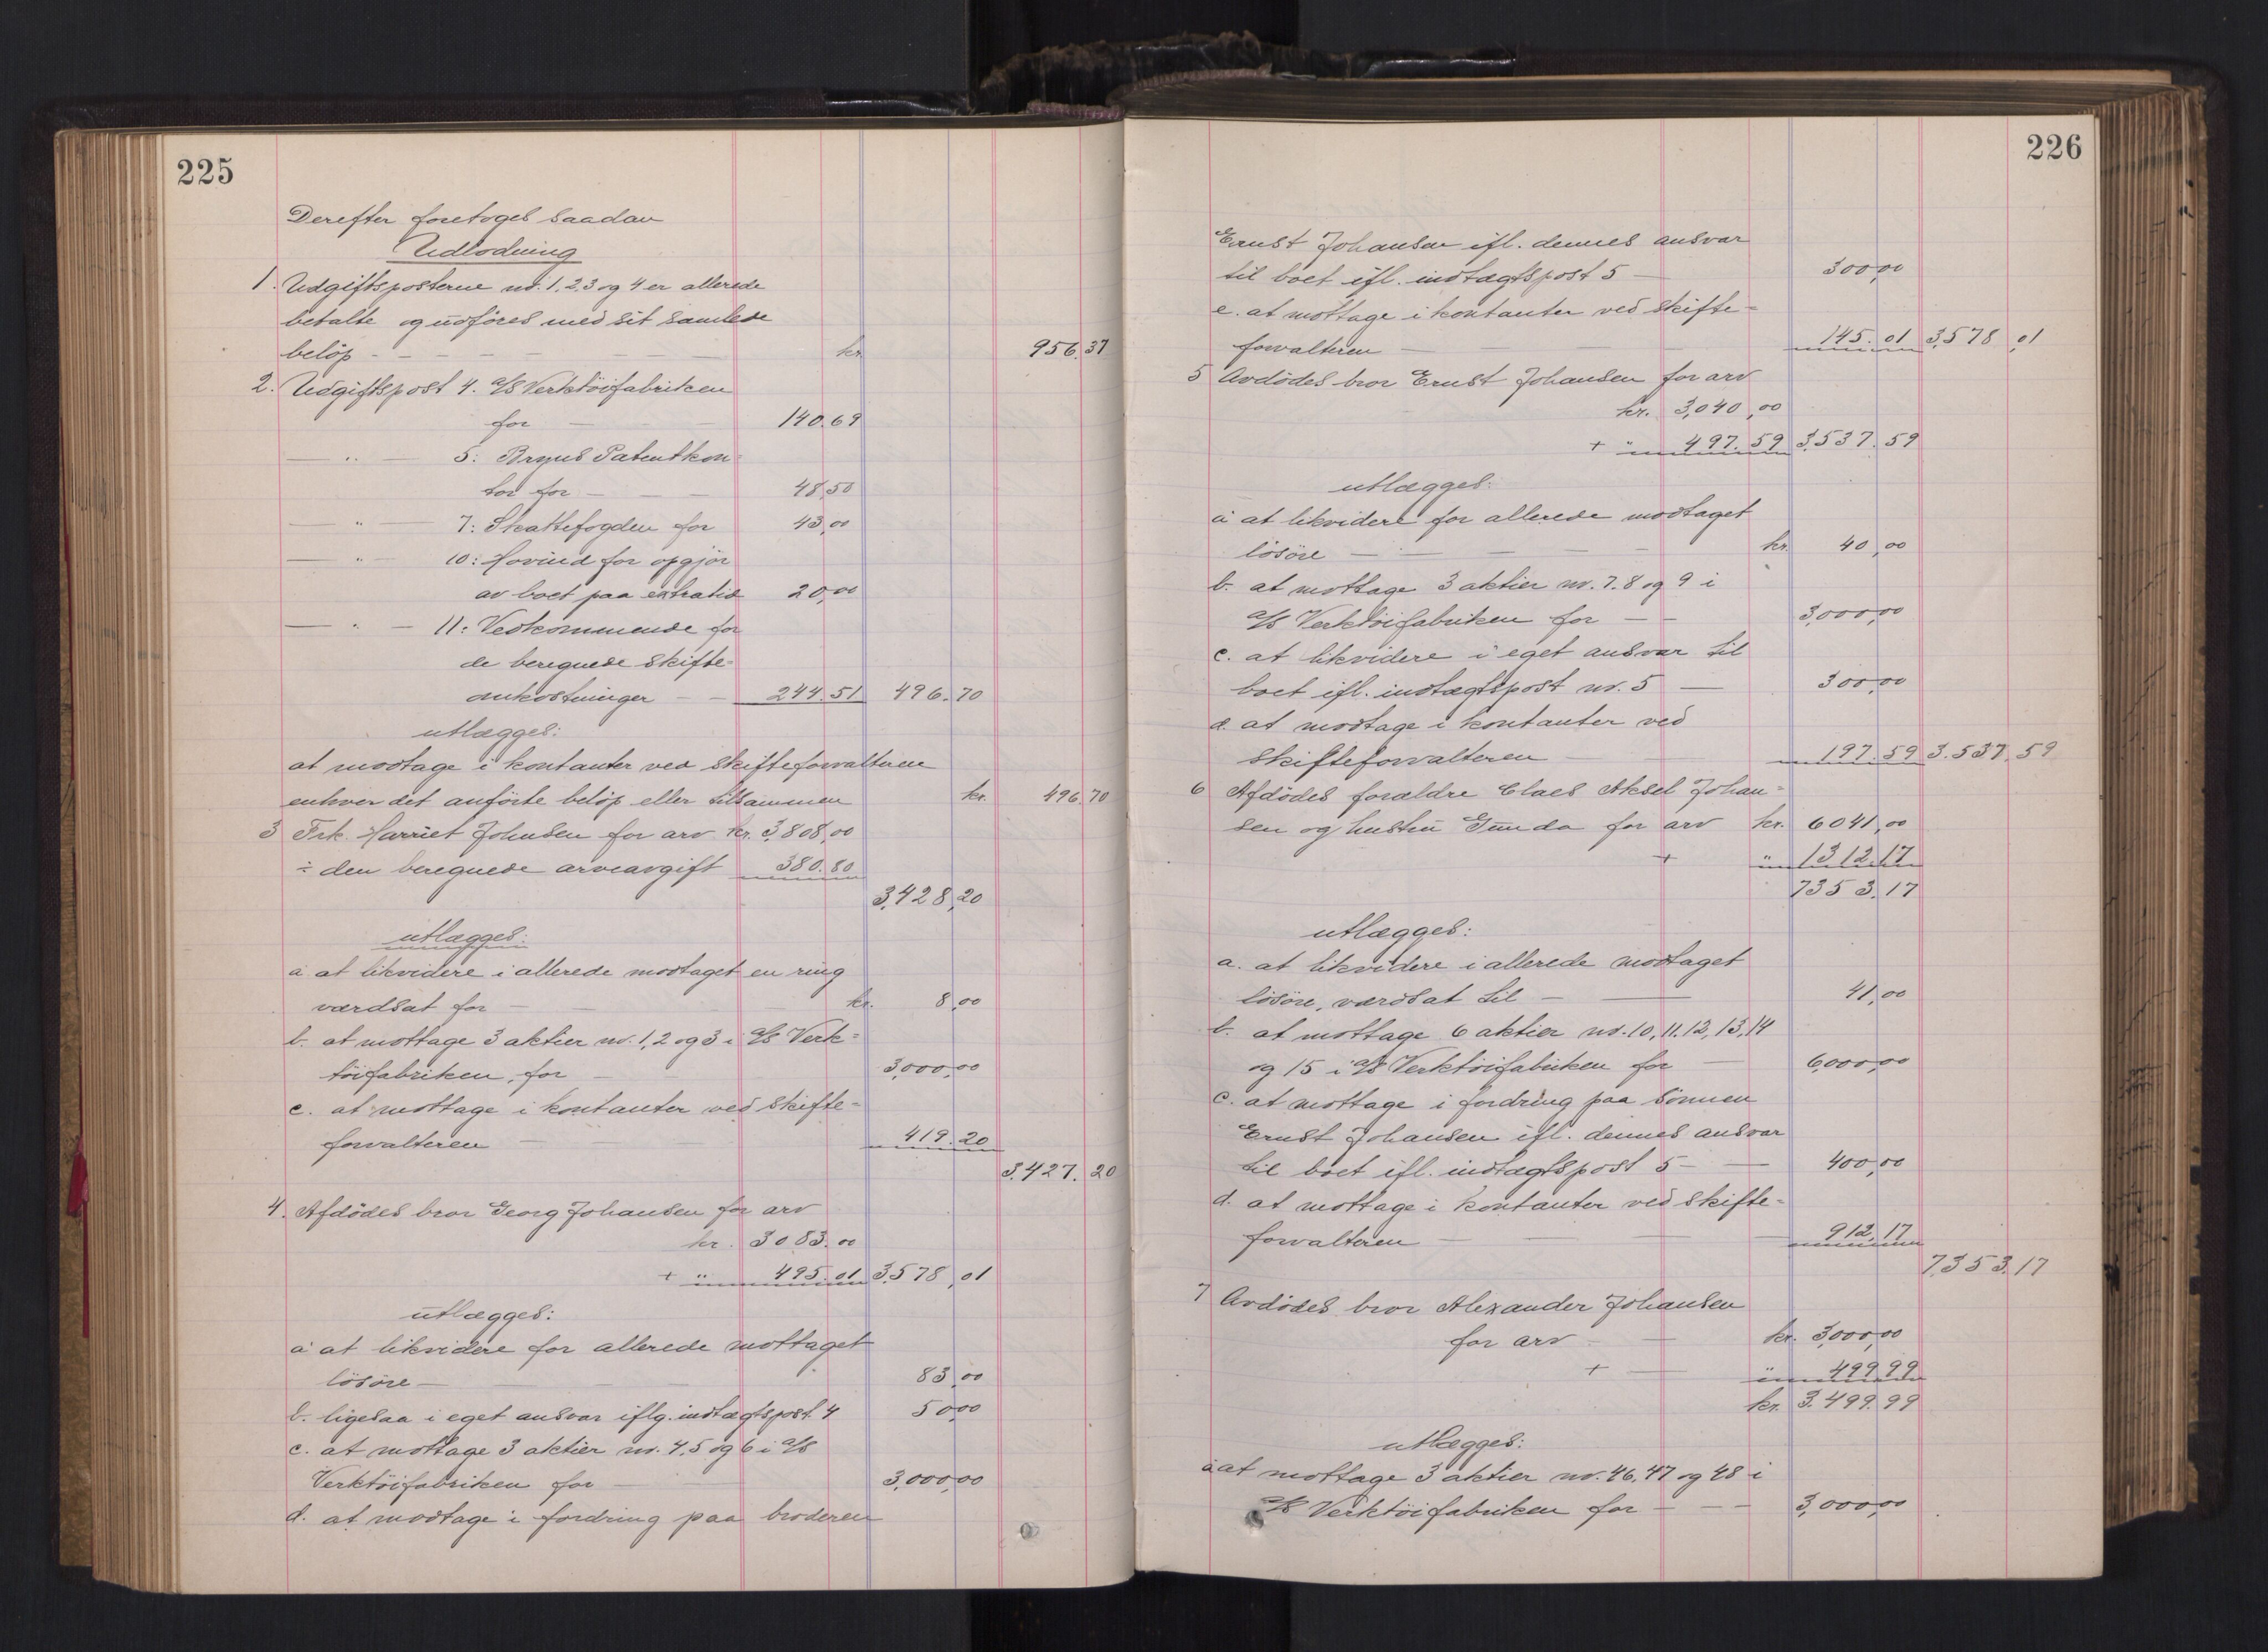 225
Derefter foretoges saadan
Udlodning
1. Udgiftsposterne no. 1, 2, 3 og 4 er allerede
betalte og udföres med sit samlede
belöp - - - - - kr. 956.37
2. Udgiftspost 4. A/S Verktöifabriken
for - 140.69
— " — 5: Bryns Patentkon-
tor for - 48,50
— " — 7: Skattefogden for 43,00
— " — 10: Hovind for opgjör
av boet paa extratid 20,00
— " — 11: Vedkommende for
de beregnede skifte-
omkostninger - - 244.51 496.70
utlægges:
at modtage i kontanter ved skifteforvalteren
enhver det anförte belöp eller tilsammen kr. 496.70
3 Frk. Harriet Johnsen for arv kr. 3,808,00
÷ den beregnede arveavgift 380.80
3,428,20
utlægges:
a at likvidere i allerede modtaget en ring
værdsat for - kr. 8,00
b. at mottage 3 aktier no. 1, 2 og 3 i A/S Verk-
töifabriken, for - 3,000,00
c. at mottage i kontanter ved skifte-
forvalteren - 419.20
3.427.20
4. Afdödes bror Georg Johansen for arv
kr. 3083.00
+ " 495.01 3.578,01
utlægges:
a at likvidere for allerede mottaget
lösöre - 83,00
b. ligesaa i eget ansvar iflg. indtægtspost 4 50,00
c. at mottage 3 aktier no. 4, 5 og 6 i A/S
Verktöifabriken for - 3,000,00
d. at modtage i fordring paa broderen
226
Ernst Johansen ifl. dennes ansvar
til boet ifl. indtægtspost 5 - 300,00
e. at mottage i kontanter ved skifte-
forvalteren - 145.01 3,578,01
5 Avdödes bror Ernst Johansen for arv
kr. 3,040,00
+ " 497.59 3,537.59
utlægges:
a at likvidere for allerede modtaget
lösöre - - - - kr. 40,00
b. at mottage 3 aktier no. 7, 8 og 9 i
A/S Verktöifabriken for - - 3,000,00
c. at likvidere i eget ansvar til
boet ifl. indtægtspost no. 5 - 300,00
d. at modtage i kontanter ved
skifteforvalteren - 197.59 3.537.59
6 Afdödes forældre Claes Aksel Johan-
sen og hustru Gunda for arv kr. 6041,00
+ " 1312.17
7353.17
utlægges:
a. at likvidere i allerede modtaget
lösöre, værdsat til - 41,00
b. at mottage 6 aktier no. 10, 11, 12, 13, 14
og 15 i A/S Verktöifabriken for - 6,000,00
c. at mottage i fordring paa sönnen
Ernst Johansen ifl. dennes ansvar
til boet ifl. indtægtspost 5 - - 400,00
d. at mottage i kontanter ved skifte-
forvalteren - 912.17
7,353.17
7 Avdödes bror Alexander Johansen
for arv - kr. 3,000,00
+ - " 499.99
kr. 3.499.99
utlægges:
a at mottage 3 aktier no. 46, 47 og 48 i
A/S Verktöifabriken for - - - 3,000,00